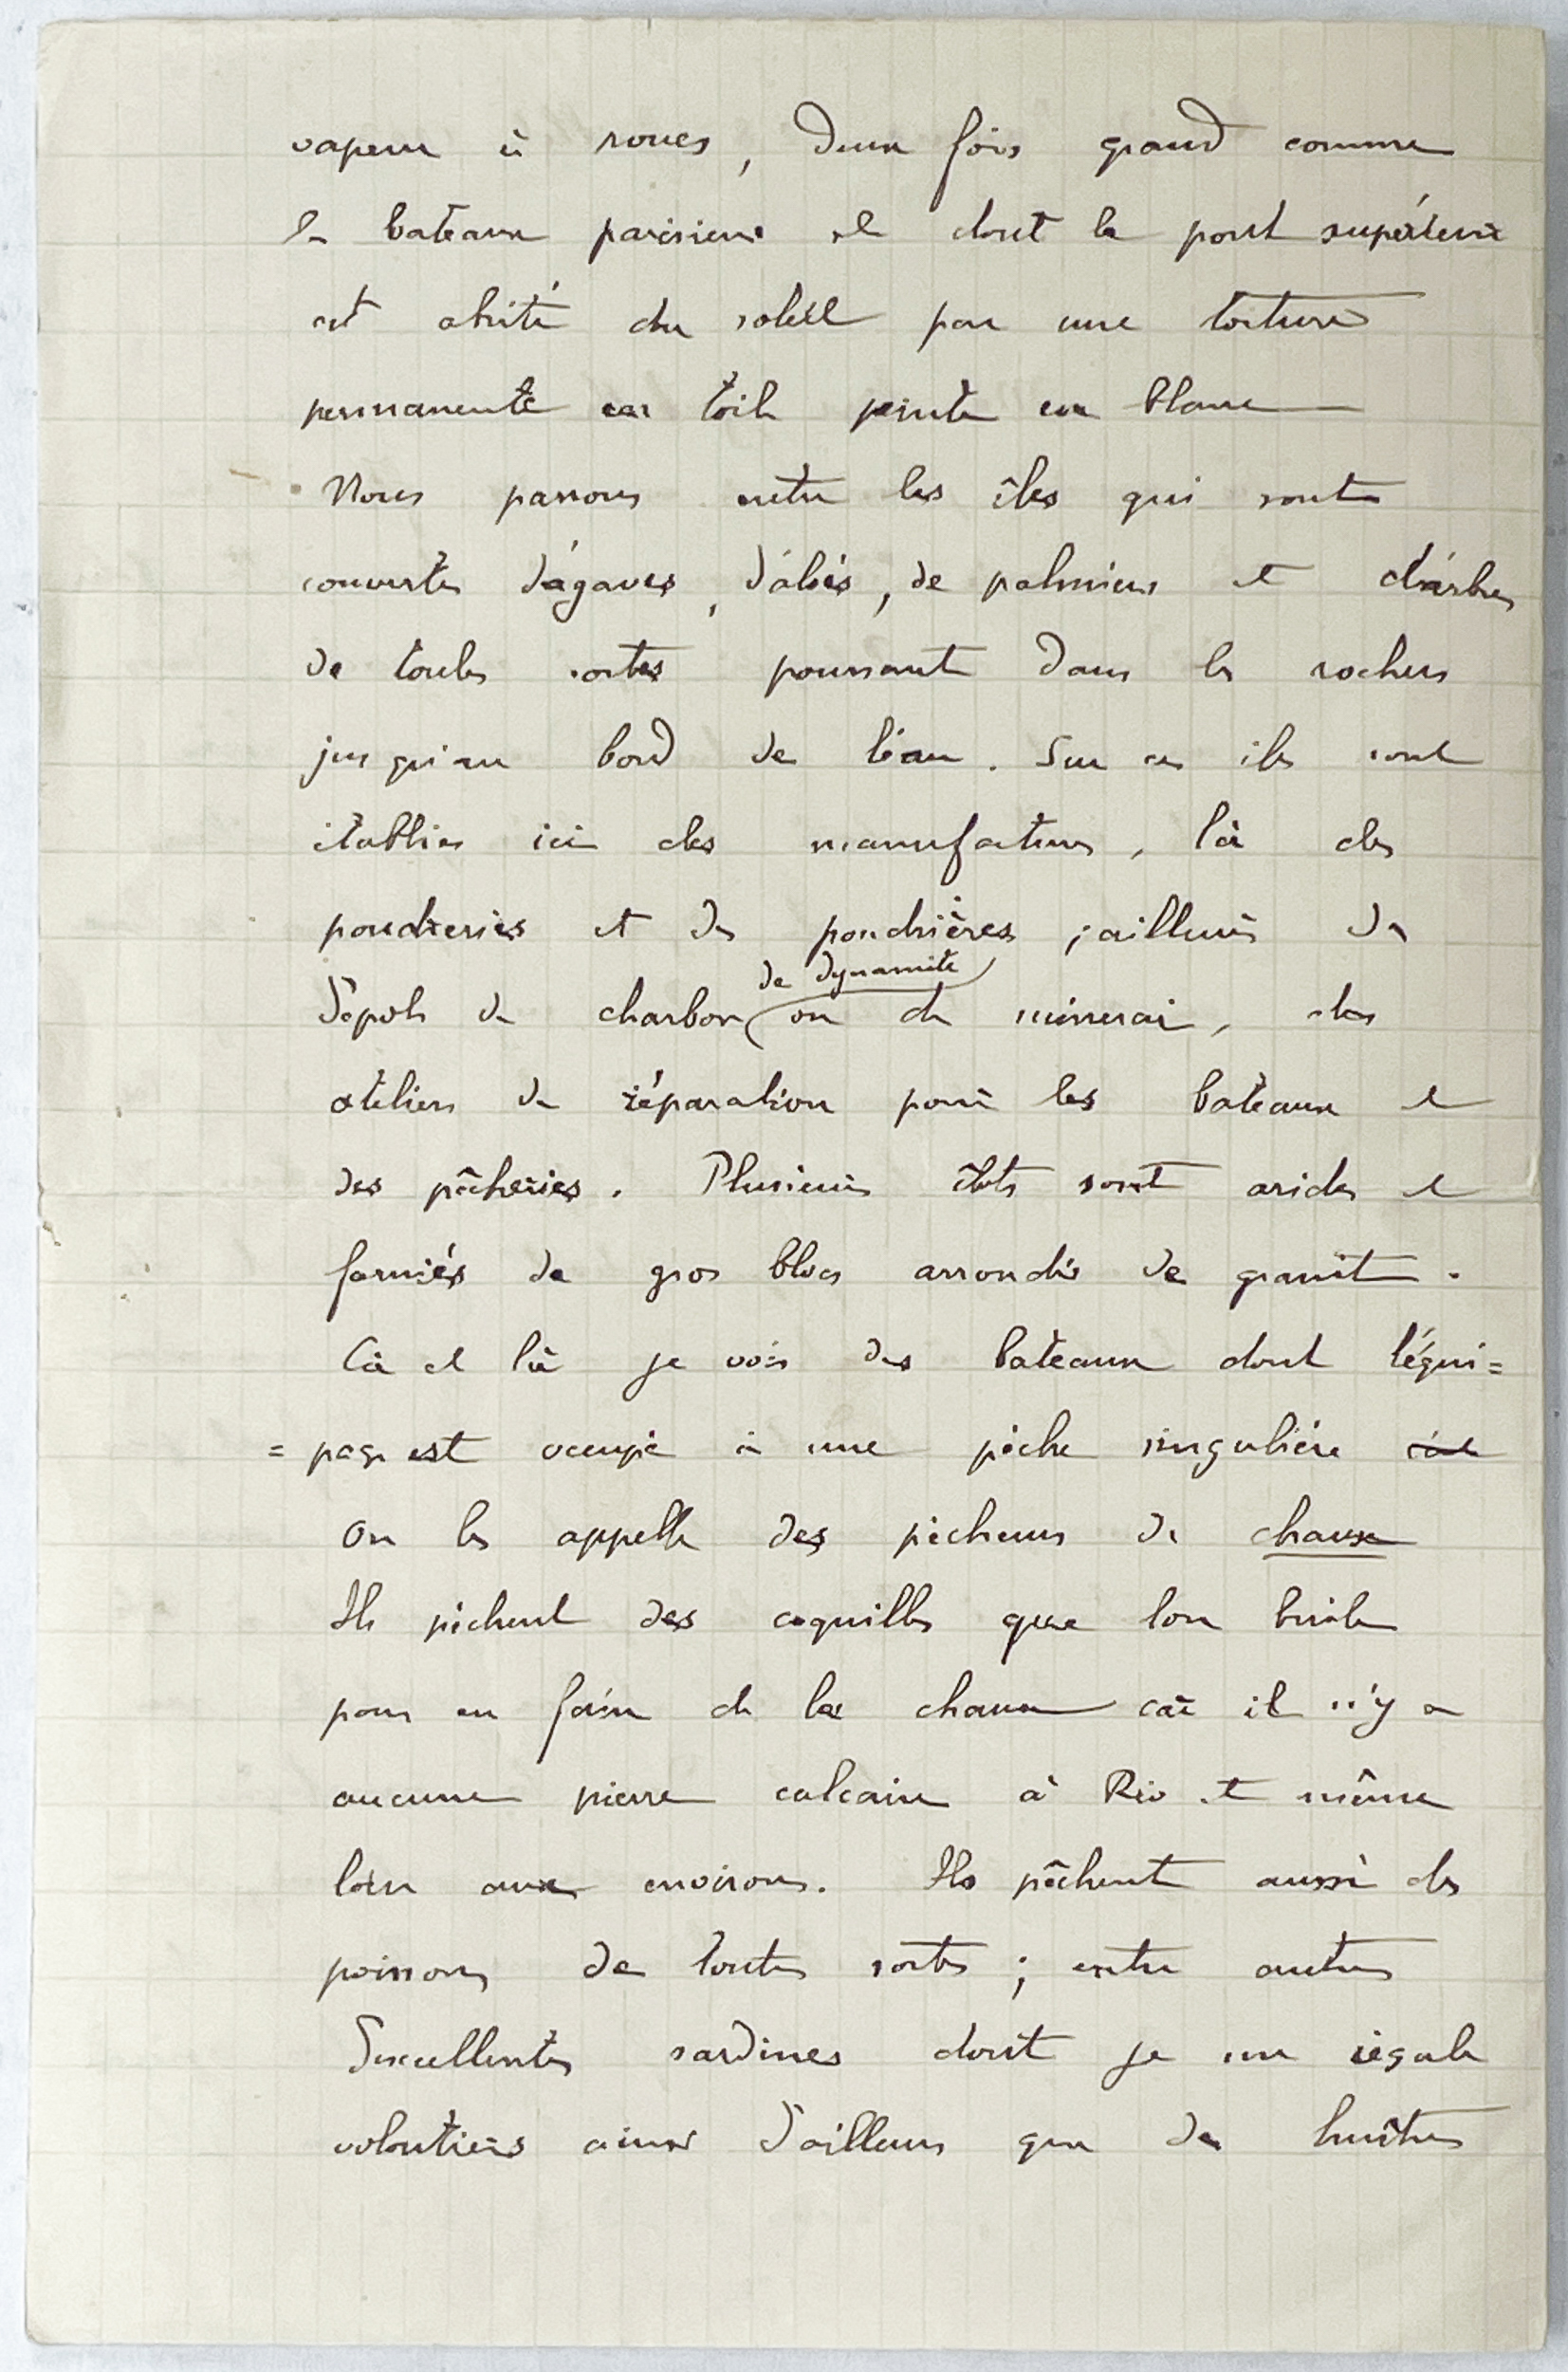 vapeur à roues, deux fois grand comme
les bateaux parisiens et dont le pont supérieur
est abrité du soleil par une toiture
permanente en toile peinte en blanc
Nous passons entre les îles qui sont
couvertes d'agaves, d'aloès, de palmiers et d'arbres
de toutes sortes poussant dans les rochers
jusqu'au bord de l'eau. Sur ces îles sont
établies ici des manufactures, là des
poudreries et des poudrières ; ailleurs des
de dynamite
dépots de charbon ou de minerai, des
ateliers de réparation pour les bateaux et
des pêcheries. Plusieurs îlots sont arides et
formés de gros blocs arrondis de granit.
Cà et là je vois des bateaux dont l'équi=
=page est occupé à une pêche singulière
On les appelle des pêcheurs de chaux
Ils pêchent des coquilles que l'on brûle
pour en faire de la chaux car il n'y a
aucune pierre calcaire à Rio et même
loin aux environs. Ils pêchent aussi des
poissons de toutes sortes ; entre autres
d'excellentes sardines dont je me régale
volontiers ainsi d'ailleurs que des huîtres